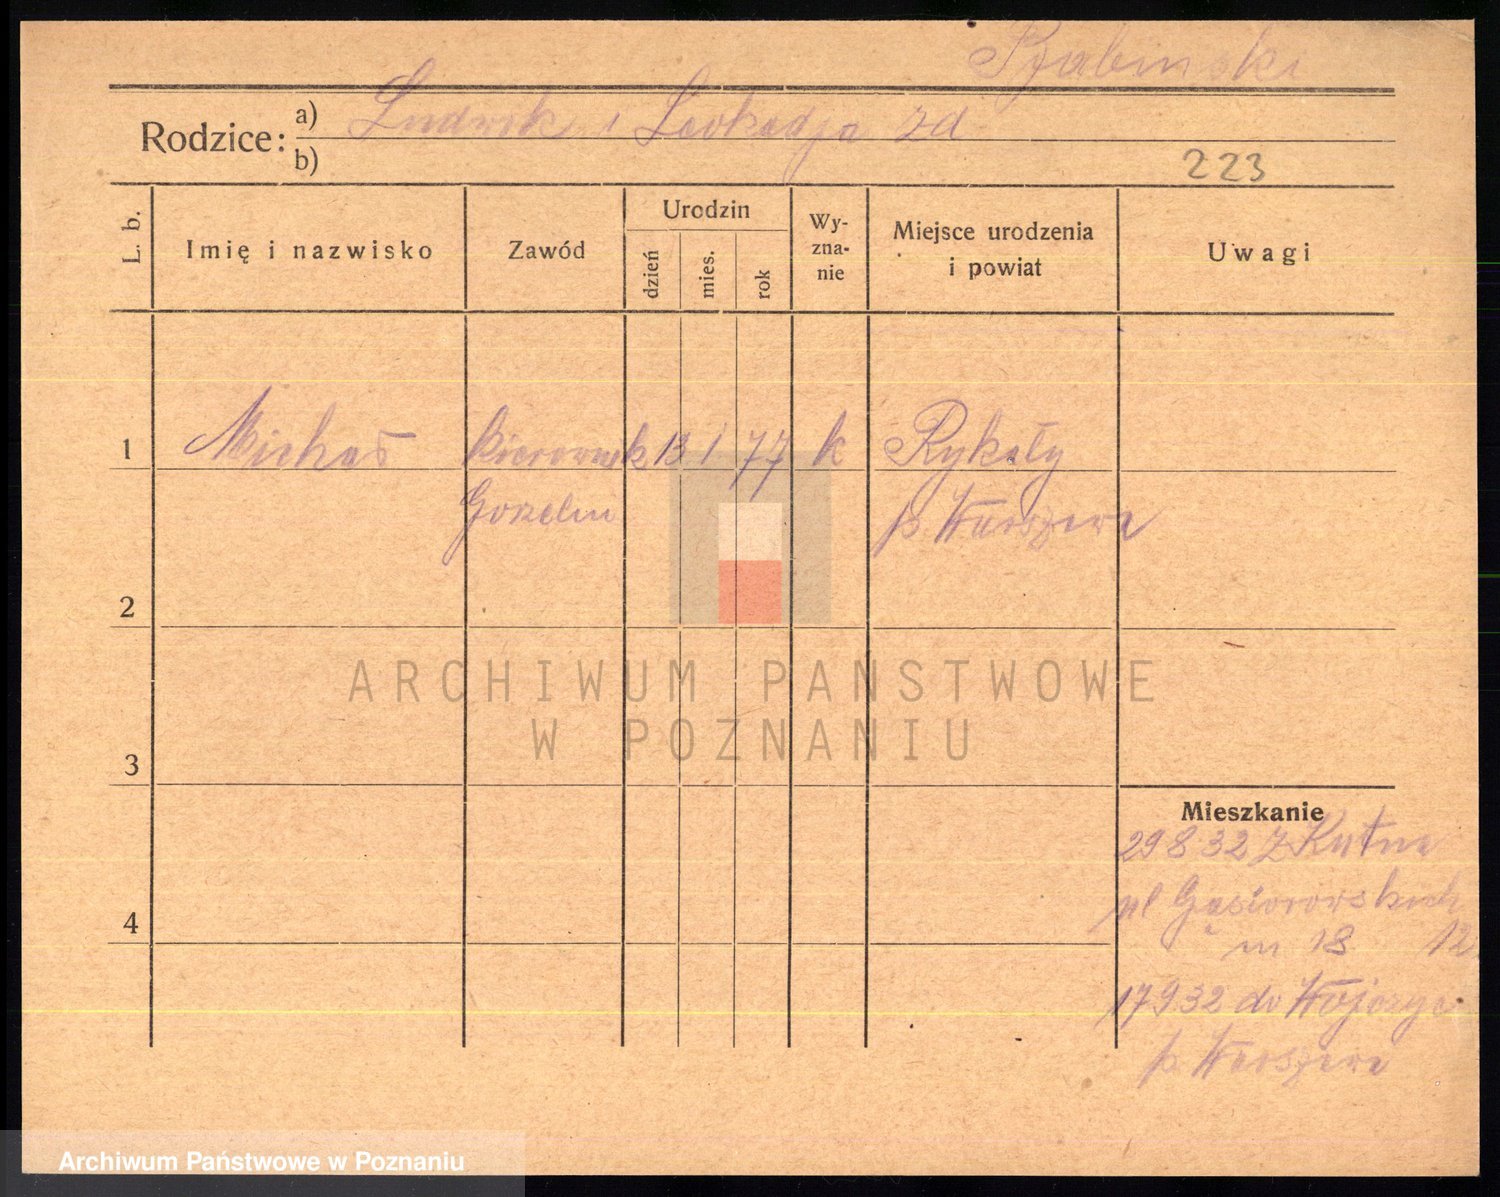 Szubinski
Rodzice: a) Ludwik i Leokadja zd
b)
223
L. b.
Imię i nazwisko
Zawód
Urodzin
dzień
mies.
rok
Wy-
zna-
nie
Miejsce urodzenia
i powiat
Uwagi
1 Michał kierownik 13 1 77 k Rykały
Gorzelni p. Warszawa
2
3
4
Mieszkanie
29 8 32 z Kutna
ul Gąsiorowskich
m 18 12
17 9 32 do
p. Warszawa
ARCHIWUM PAŃSTWOWE
W POZNANIU
Archiwum Państwowe w Poznaniu